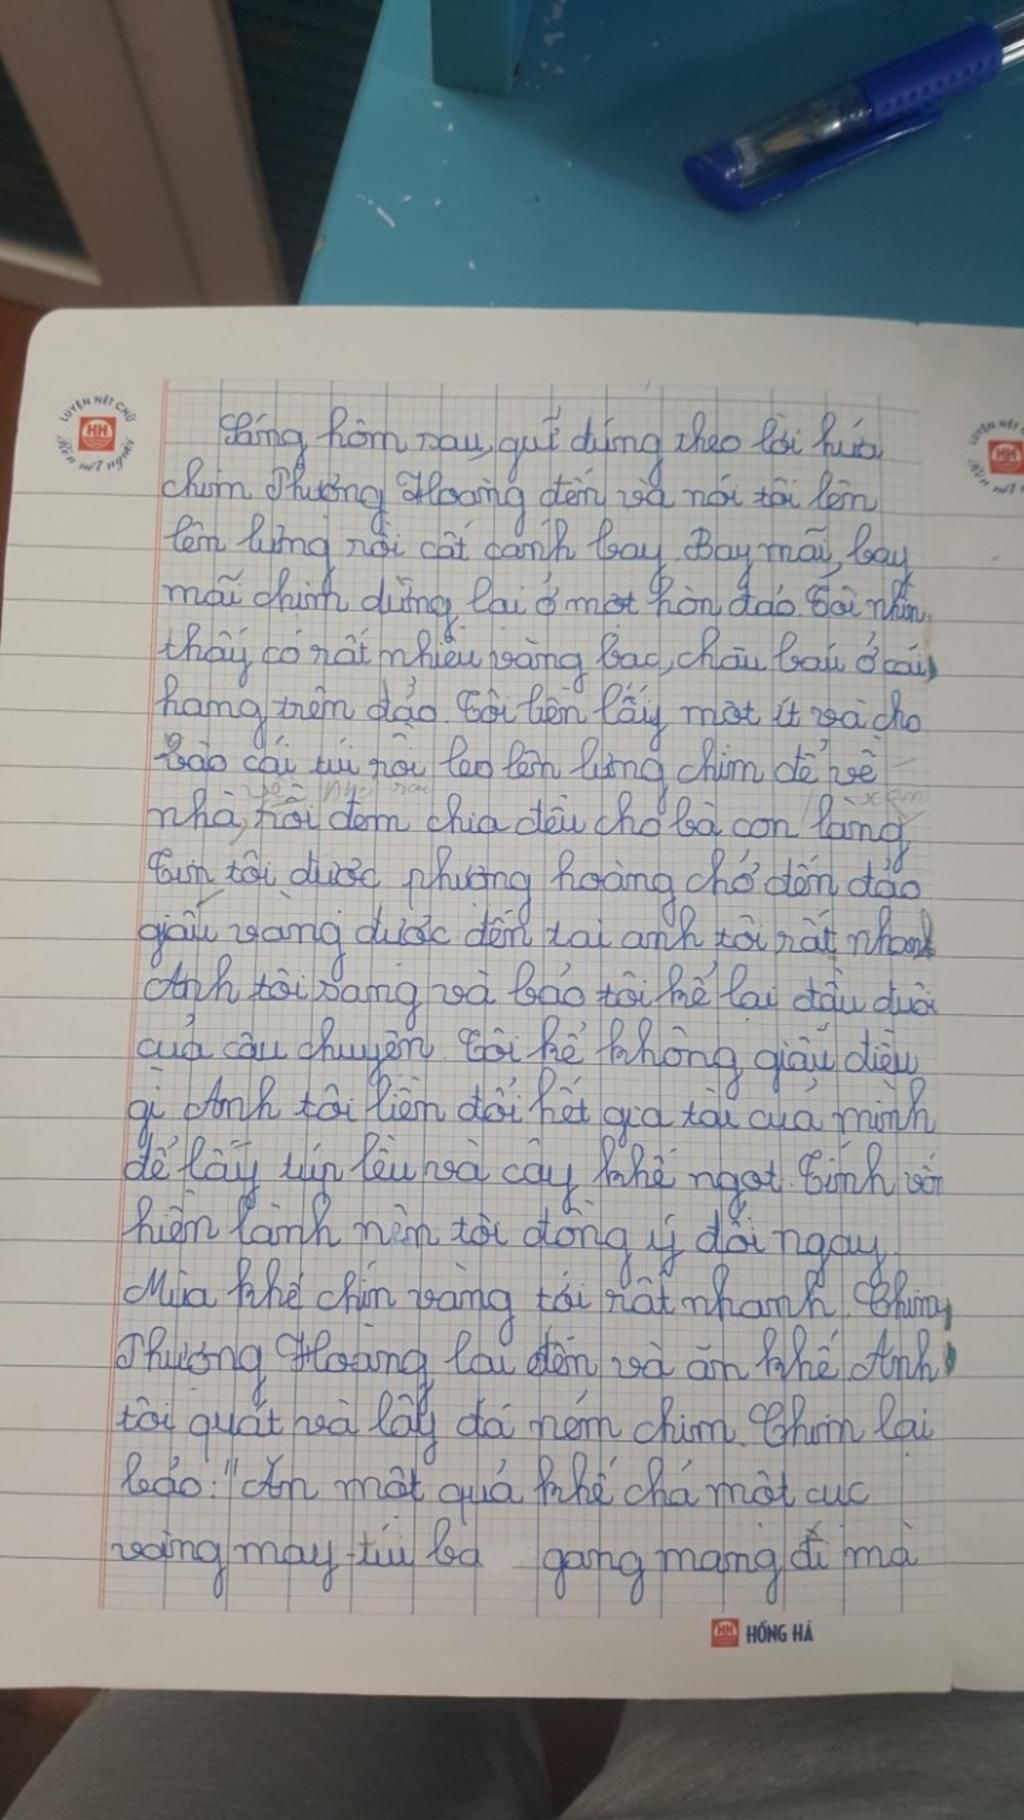 LUYỆN NÉT CHỮ
HH
Rèn nết người
Sáng hôm sau, quả đúng theo lời hứa
chim Phượng Hoàng đến và nói tôi lên
lên lưng rồi cất cánh bay. Bay mãi, bay
mãi chim dừng lại ở một hòn đảo. Tôi nhìn
thấy có rất nhiều vàng bạc, châu báu ở cái
hang trên đảo. Tôi liền lấy một ít và cho
vào cái túi rồi leo lên lưng chim để về
nhà, rồi đem chia đều cho bà con làng
Tin tôi được phượng hoàng chở đến đảo
giấu vàng được đến tai anh tôi rất nhanh
Anh tôi sang và bảo tôi kể lại đầu đuôi
của câu chuyện. Tôi kể không giấu điều
gì. Anh tôi liền đổi hết gia tài của mình
để lấy túp lều và cây khế ngọt. Tính vốn
hiền lành nên tôi đồng ý đổi ngay.
Mùa khế chín vàng tới rất nhanh. Chim
Phượng Hoàng lại đến và ăn khế. Anh
tôi quát và lấy đá ném chim. Chim lại
bảo: "Ăn một quả khế chả một cục
vàng may túi ba gang mang đi mà
HH HỒNG HÀ